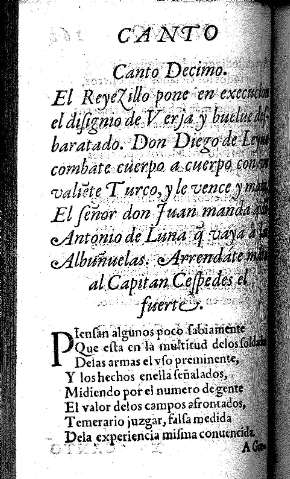 CANTO
Canto Decimo.
El Reyezillo pone en execucion
el disignio de Verja y buelue des-
baratado. Don Diego de Leyua
combate cuerpo a cuerpo con vn
valiẽte Turco, y le vence y mata.
El señor don Juan manda que
Antonio de Luna q̃ vaya a las
Albuñuelas. Arrendate
al Capitan Cespedes el
fuerte.
PIensan algunos poco sabiamente
Que esta en la multitud delos soldados
Delas armas el vso preminente,
Y los hechos enella señalados,
Midiendo por el numero de gente
El valor delos campos afrontados,
Temerario juzgar, falsa medida
Dela experiencia misma conuencida.
A